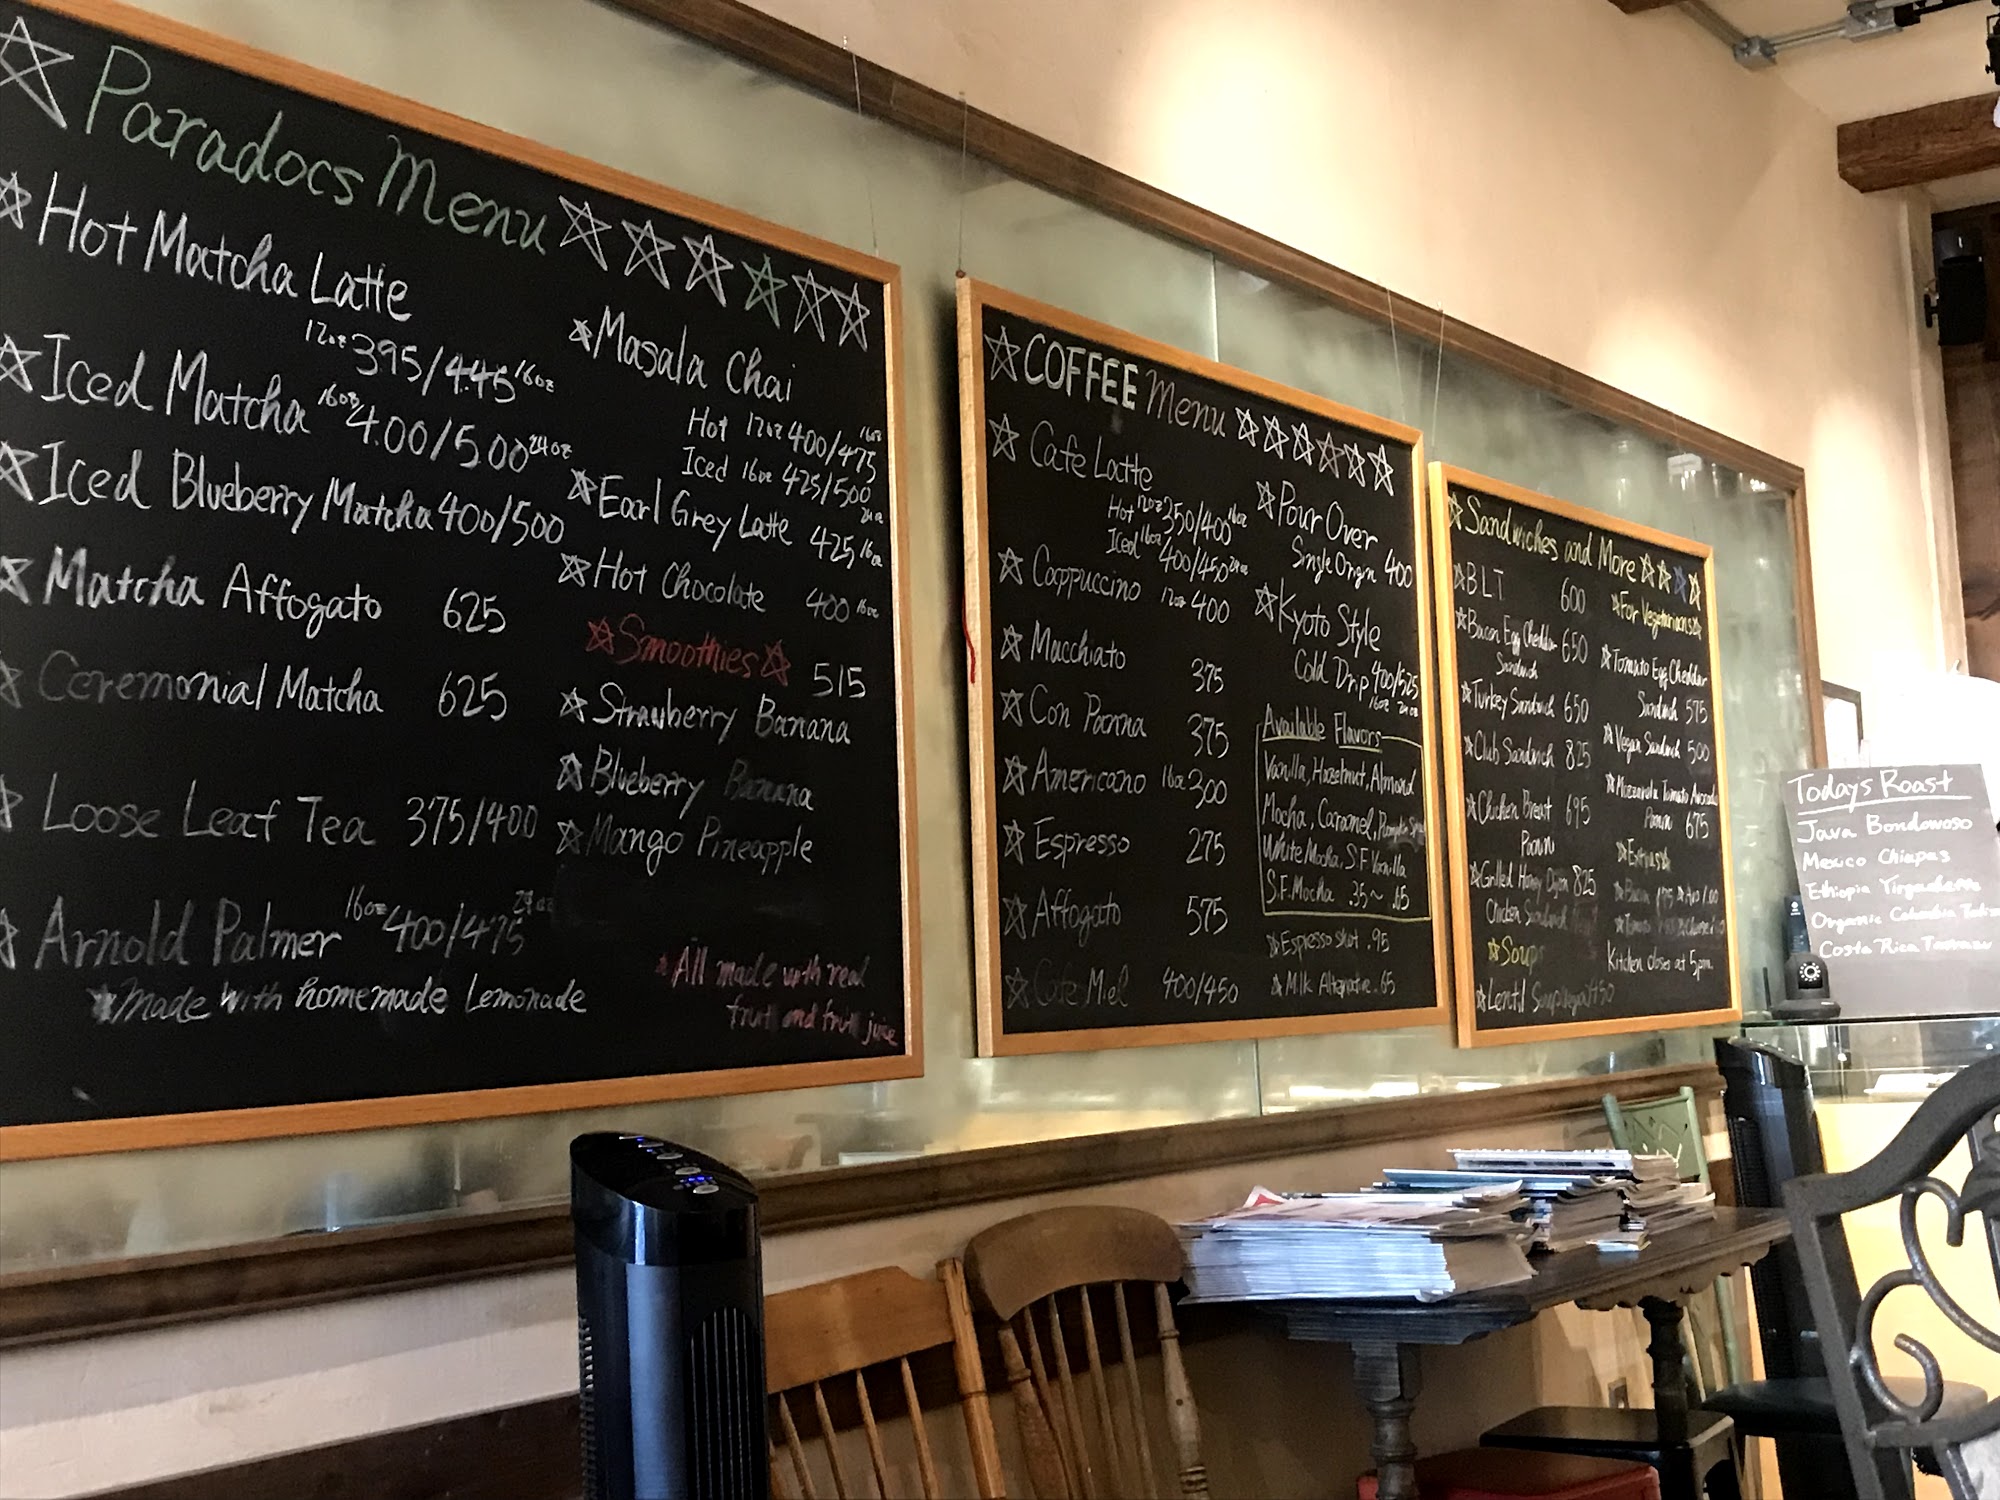 Paradocs Menu
Hot Matcha Latte
12oz 395/4.45 16oz
Iced Matcha 16oz 4.00/500 24oz
Iced Blueberry Matcha 400/500
Matcha Affogato 625
Ceremonial Matcha 625
Loose Leaf Tea 375/400
Arnold Palmer 16oz 400/475 24oz
Made with homemade Lemonade
Masala Chai
Hot 12oz 400/475 16oz
Iced 16oz 425/500 24oz
Earl Grey Latte 425 16oz
Hot Chocolate 400 16oz
Smoothies 515
Strawberry Banana
Blueberry Banana
Mango Pineapple
All made with real
fruit and fruit juice
COFFEE Menu
Cafe Latte
Hot 12oz 350/400 16oz
Iced 16oz 400/450 24oz
Cappuccino 12oz 400
Macchiato 375
Con Panna 375
Americano 16oz 300
Espresso 275
Affogato 575
Cafe Miel 400/450
Pour Over
Single Origin 400
Kyoto Style
Cold Drip 400/525
16oz 24oz
Available Flavors
Vanilla, Hazelnut, Almond
Mocha, Caramel, Pumpkin
White Mocha, S.F. Vanilla
S.F. Mocha .35~ .65
Espresso shot .95
Milk Alternative .65
Sandwiches and More
BLT 600
Bacon Egg Cheddar 650
Sandwich
Turkey Sandwich 650
Club Sandwich 825
Chicken Breast 695
Panini
Grilled Honey Dijon 825
Chicken Sandwich
Soup
Lentil Soup
For Vegetarians
Tomato Egg Cheddar
Sandwich 575
Vegan Sandwich 500
Mozzarella Tomato Avocado
Panini 675
Extras
Bacon
Tomato
Kitchen closes at 5pm.
Todays Roast
Java Bondowoso
Mexico Chiapas
Ethiopia Yirgacheffe
Organic Colombia
Costa Rica Tarrazu